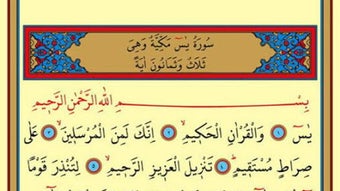 سُورَةُ يٰسٓ مَكِّيَّةٌ وَهِىَ
ثَلَاثٌ وَثَمَانُونَ اٰيَةً
بِسْمِ اللّٰهِ الرَّحْمٰنِ الرَّحٖيمِ
يٰسٓ ﴿١﴾ وَالْقُرْاٰنِ الْحَكٖيمِۙ ﴿٢﴾ اِنَّكَ لَمِنَ الْمُرْسَلٖينَۙ ﴿٣﴾ عَلٰى
صِرَاطٍ مُسْتَقٖيمٍؕ ﴿٤﴾ تَنْزٖيلَ الْعَزٖيزِ الرَّحٖيمِۙ ﴿٥﴾ لِتُنْذِرَ قَوْمًا